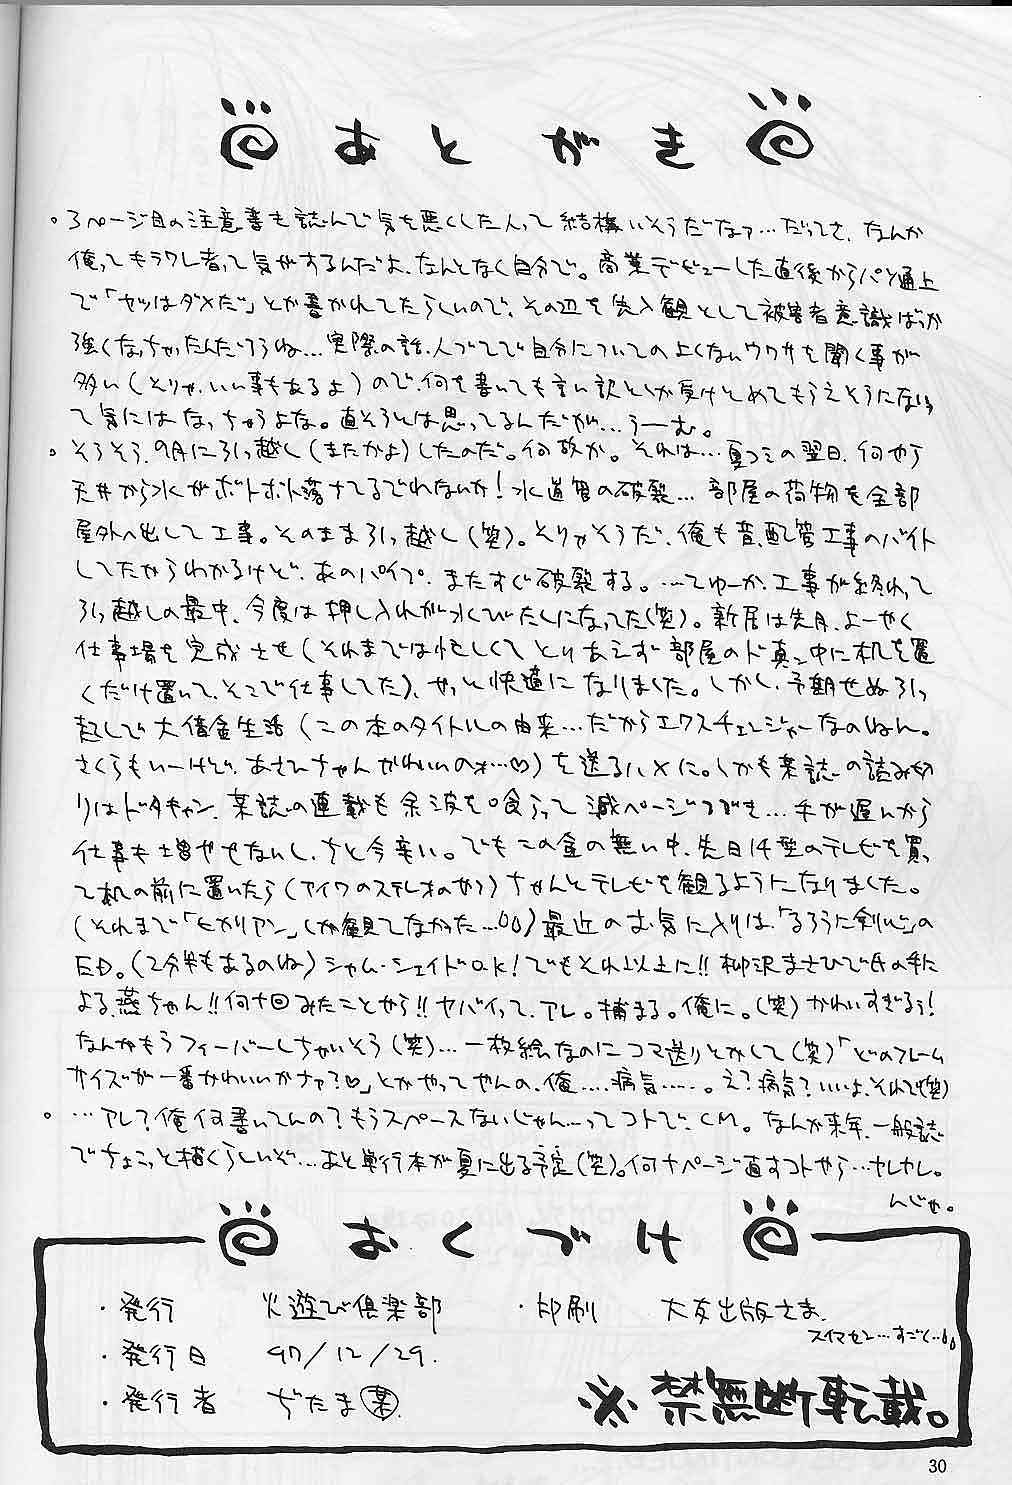 あとがき
。3ページ目の注意書も読んで気を悪くした人って結構いそうだなァ…だってさ、なんか
俺ってキラワレ者って気がするんだよ、なんとなく自分で。商業デビューした直後からパソ通上
で「ヤツはダメだ」とか書かれてたらしいので、その辺を先入観として被害者意識ばっか
強くなっちゃったんだろうね…実際の話、人づてで自分についてのよくないウワサを聞く事が
多い(そりゃ、いい事もあるよ)ので、何を書いても言い訳としか受けとめてもらえそうにないっ
て気にはなっちゃうよな。直そうとは思ってるんだが…うーむ。
。そうそう、9月に引っ越し(またかよ)したのだ。何故か。それは…夏コミの翌日、何やら
天井から水がボトボト落ちてるでわないか!水道管の破裂…部屋の荷物を全部
屋外へ出して工事。そのまま引っ越し(笑)。そりゃそうだ、俺も昔、配管工事のバイト
してたからわかるけど、あのパイプ、またすぐ破裂する。…てゆーか、工事が終わって
引っ越しの最中、今度は押し入れが水びたしになってた(笑)。新居は先月、よーやく
仕事場を完成させ(それまでは忙しくてとりあえず部屋のド真ン中に机を置
くだけ置いて、そこで仕事してた)、やっと快適になりました。しかし、予期せぬ引っ
越しで大借金生活(この本のタイトルの由来…だからエクスチェンジャーなのねん。
さくらもいーけど、あさひちゃんかわいいのォ…♡)を送るハメに。しかも某誌の読み切
りはドタキャン、某誌の連載も余波を喰らって減ページつづき…手が遅んから
仕事も増やせないし、ちと今辛い。でもこの金の無い中、先日14型のテレビを買っ
て机の前に置いたら(アイワのステレオのやつ)ちゃんとテレビを観るようになりました。
(それまで「ヒカリアン」しか観てなかった…)最近のお気に入りは「るろうに剣心」の
ED。(2分半もあるのね)シャム・シェイドO.K!でもそれ以上に!!柳沢まさひで氏の手に
よる、燕ちゃん!!何十回みたことやら!!ヤバイって、アレ。捕まる。俺に。(笑)かわいすぎるぅ!
なんかもうフィーバーしちゃいそう(笑)…一枚絵なのにコマ送りとかして(笑)「どのフレーム
サイズが一番かわいいかナァ?♡」とかやってやんの、俺……病気……。え?病気?いいよ、それで(笑)
。…アレ?俺何書いてんの?もうスペースないじゃん…ってコトで、CM。なんか来年、一般誌
でちょこっと描くらしいぞ…あと単行本が夏に出る予定(笑)。何十ページ直すコトやら…ヤレヤレ。
んじゃ。
おくづけ
・発行 火遊び倶楽部 ・印刷 大友出版さま
スイマセン…すごく…
・発行日 97/12/29.
・発行者 ぢたま(某)
※禁無断転載。
30